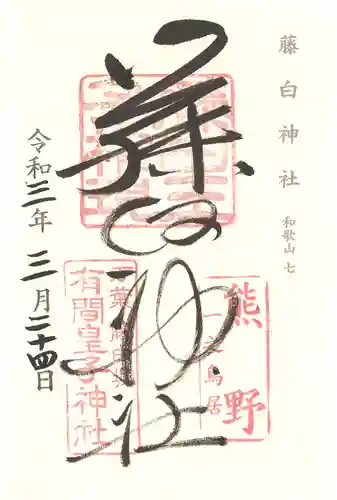 藤白神社
和歌山 七
藤白神社
熊野
一之鳥居
有間皇子神社
令和三年 三月二十四日